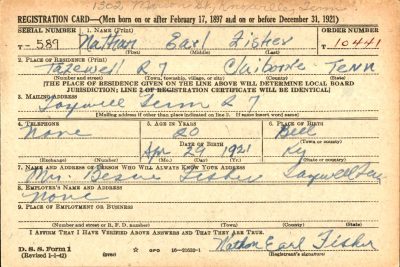 REGISTRATION CARD—(Men born on or after February 17, 1897 and on or before December 31, 1921)
SERIAL NUMBER 1. NAME (Print) ORDER NUMBER
T- 589 Nathan Earl Fisher 10441
(First) (Middle) (Last)
2. PLACE OF RESIDENCE (Print)
Tazewell R 7 Claiborne Tenn
(Number and street) (Town, township, village, or city) (County) (State)
[THE PLACE OF RESIDENCE GIVEN ON THE LINE ABOVE WILL DETERMINE LOCAL BOARD
JURISDICTION; LINE 2 OF REGISTRATION CERTIFICATE WILL BE IDENTICAL]
3. MAILING ADDRESS
Tazewell Tenn R 7
[Mailing address if other than place indicated on line 2. If same insert word same]
4. TELEPHONE 5. AGE IN YEARS 6. PLACE OF BIRTH
None 20 Bell
DATE OF BIRTH (Town or county)
Apr 29 1921 Ky
(Exchange) (Number) (Mo.) (Day) (Yr.) (State or country)
7. NAME AND ADDRESS OF PERSON WHO WILL ALWAYS KNOW YOUR ADDRESS
Fisher Tazewell Tenn
8. EMPLOYER'S NAME AND ADDRESS
None
9. PLACE OF EMPLOYMENT OR BUSINESS
(Number and street or R. F. D. number) (Town) (County) (State)
I AFFIRM THAT I HAVE VERIFIED ABOVE ANSWERS AND THAT THEY ARE TRUE.
D. S. S. Form 1 Nathan Earl Fisher
(Revised 1-1-42) (over) GPO 16—21630-1 (Registrant's signature)